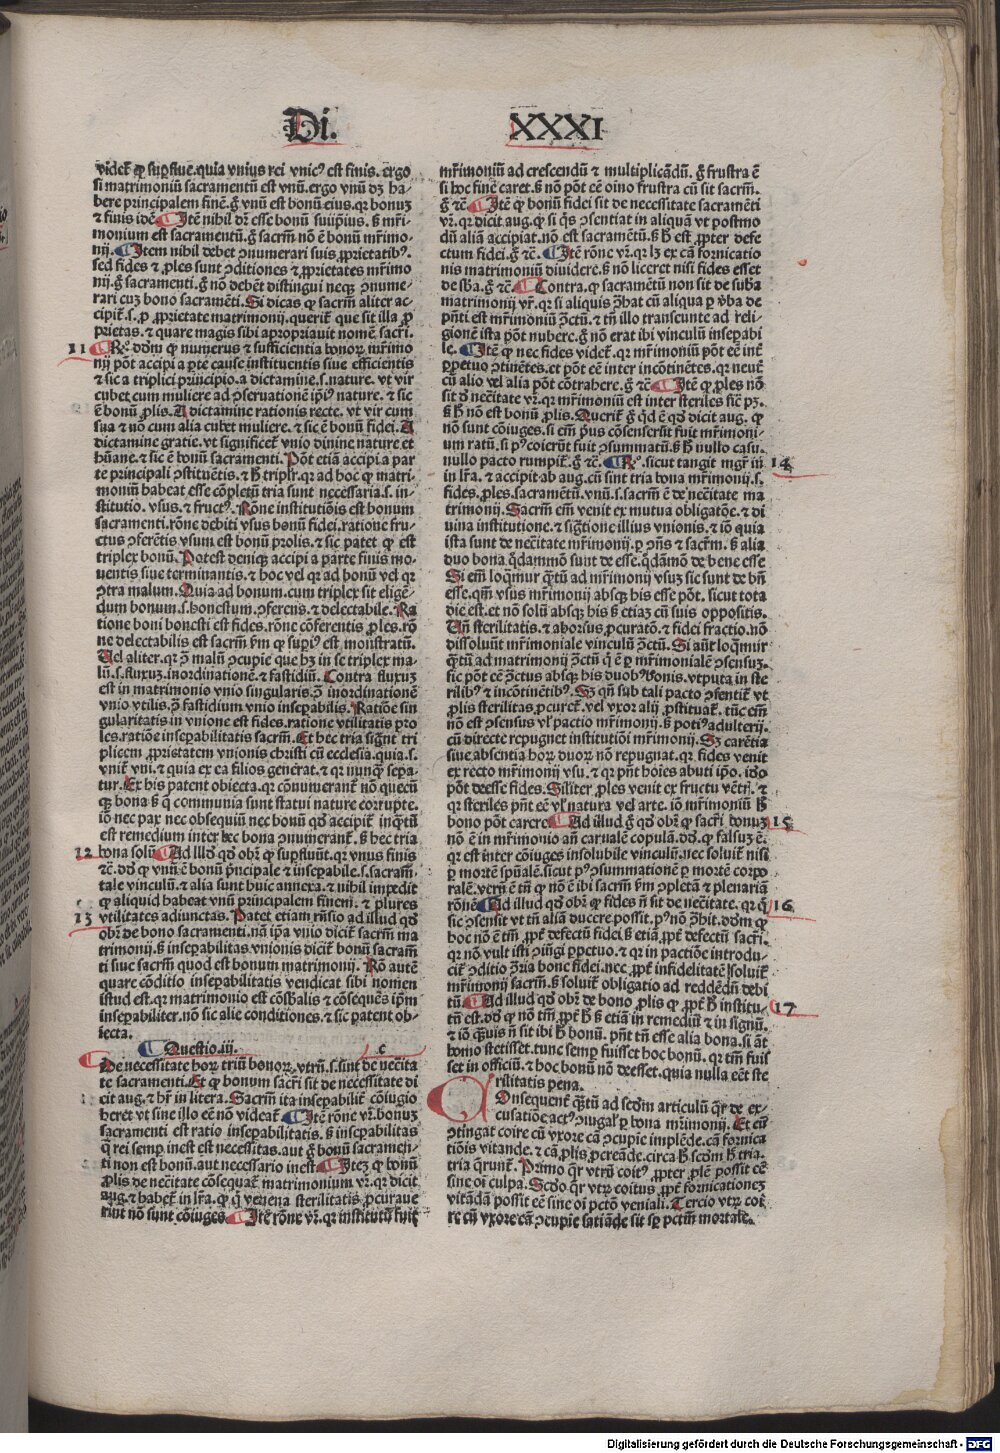 Di. XXXI
videt ꝙ supfiue.quia vnius rei vnicꝰ est finis. ergo
si matrimoniū sacramentū est vnū.ergo vnū dꝫ ha-
bere principalem finē.g̊ vnū est bonū eius.qꝛ bonuꝫ
⁊ finis idē ¶ Itē nihil dꝛ esse bonū suiip̄ius. sꝫ mr̄i-
monium est sacramentū.g̊ sacrm̄ nō ē bonū mr̄imo-
nij. ¶ Item nihil debet ꝯnumerari suis ꝓprietatibꝰ.
sed fides ⁊ ꝓles sunt ꝯditiones ⁊ ꝓprietates mr̄imo
nij.g̊ sacramenti.g̊ nō debēt distingui neqꝫ ꝯnume-
rari cuꝫ bono sacramēti. Si dicas ꝙ sacrm̄ aliter ac-
cipit̄.s.ꝑ ꝓprietate matrimonij.querit̄ que sit illa ꝓ
prietas.⁊ quare magis sibi apropriauit nomē sacri.
11 ¶ Rᵒ. dōm ꝙ numerus ⁊ sufficientia bonoꝝ mr̄imo
nij pōt accipi a ꝑte cause instituentis siue efficientis
⁊ sic a triplici principio.a dictamine.s.nature. vt vir
cubet cum muliere ad ꝯseruationē ip̄iꝰ nature. ⁊ sic
ē bonū ꝓlis. A dictamine rationis recte. vt vir cum
sua ⁊ nō cum alia cubet muliere. ⁊ sic ē bonū fidei. A
dictamine gratie. vt significet̄ vnio diuine nature et
hūane.⁊ sic ē bonū sacramenti. Pōt etiā accipi a par
te principali ꝯstituētis. ⁊ h̄ triplr̄.qꝛ ad hoc ꝙ matri-
moniū habeat esse cōpletū tria sunt necessaria.s. in-
stitutio. vsus.⁊ fructꝰ. Rōne institutiōis est bonum
sacramenti.rōne debiti vsus bonū fidei.ratione fru-
ctus ꝯferētis vsum est bonū prolis.⁊ sic patet ꝙ est
triplex bonū. Potest deniqꝫ accipi a parte finis mo-
uentis siue terminantis.⁊ hoc vel qꝛ ad bonū vel qꝛ
ꝯtra malum. Quia ad bonum. cum triplex sit eligē-
dum bonum.s.honestum. ꝯferens.⁊ delectabile. Ra
tione boni honesti est fides.rōne cōferentis ꝓles.rō
ne delectabilis est sacrm̄ ꝓm ꝙ supiꝰ est monstratū.
Uel aliter.qꝛ ꝯ̄ malū ꝯcupie que hꝫ in se triplex ma-
lū.s.fluxuꝫ.inordinationē.⁊ fastidiū. Contra fluxuꝫ
est in matrimonio vnio singularis.ꝯ̄ inordinationē
vnio vtilis.ꝯ̄ fastidium vnio insepabilis. Ratiōe sin
gularitatis in vnione est fides.ratione vtilitatis pro
les.ratiōe insepabilitatis sacrm̄. Et hec tria sign̄t tri
plicem ꝓprietatem vnionis christi cū ecclesia.quia.s.
vnit̄ vni.⁊ quia ex ea filios generat.⁊ qꝛ nunqꝫ sepa-
tur. Ex his patent obiecta.qꝛ cōnumerant̄ nō quecū
qꝫ bona sꝫ q̄ communia sunt statui nature corrupte.
iō nec pax nec obsequiū nec bonū qd̄ accipit̄ inqꝫtū
est remedium inter hec bona ꝯnumerant̄. sꝫ hec tria
12 bona solū ¶ Ad illd̄ qd̄ obꝛ̄ ꝙ supfluūt.qꝛ vnus finis
⁊c̄. dō.ꝙ vnū ē bonū pn̄cipale ⁊ insepabile.s.sacram̄-
tale vinculū.⁊ alia sunt huic annexa.⁊ nihil impedit
ꝙ aliquid habeat vnū principalem finem. ⁊ plures
13 vtilitates adiunctas. Patet etiam rn̄sio ad illud qd̄
obꝛ̄ de bono sacramenti.nā ip̄a vnio dicit̄ sacrm̄ ma
trimonij.sꝫ insepabilitas vnionis dicit̄ bonū sacram̄
ti siue sacrm̄ quod est bonum matrimonij. Rō autē
quare cōditio insepabilitatis vendicat sibi nomen
istud est.qꝛ matrimonio est cōsb̄alis ⁊ cōsequēs ip̄m
insepabiliter.nō sic alie conditiones.⁊ sic patent ob-
iecta.
¶ Questio.iij. c
De necessitate hoꝝ triū bonoꝝ.vtrū.s.sint de nec̄ita
te sacramenti. Et ꝙ bonum sacri sit de necessitate di
cit aug.⁊ hr̄ in litera. Sacrm̄ ita insepabilit̄ cōiugio
heret vt sine illo eē nō videat̄ ¶ Itē rōne vr̄.bonuꝫ
sacramenti est ratio insepabilitatis. sꝫ insepabilitas
q̄ rei semp inest est necessitas.aut g̊ bonū sacramen-
ti non est bonū.aut necessario inest ¶ Iteꝫ ꝙ bonū
ꝓlis de nec̄itate cōsequat̄ matrimonium vr̄.qꝛ dicit
aug.⁊ habet̄ in lr̄a. ꝙ q̄ venena sterilitatis ꝓcuraue
rint nō sunt cōiuges. ¶ Itē rōne vr̄.qꝛ institutū fuit
mr̄imoniū ad crescendū ⁊ multiplicādū. g̊ frustra ē
si hoc finē caret.sꝫ nō pōt eē oīno frustra cū sit sacrm̄.
g̊ ⁊c̄. ¶ Itē ꝙ bonū fidei sit de necessitate sacramēti
vr̄.qꝛ dicit aug.ꝙ si q̄s ꝯsentiat in aliquā vt postmo
dū aliā accipiat.nō est sacramētū.sꝫ h̄ est ꝓpter defe
ctum fidei.g̊ ⁊c̄. ¶ Itē rōne vr̄.qꝛ lꝫ ex cā fornicatio
nis matrimoniū diuidere.sꝫ nō liceret nisi fides esset
de sb̄a.g̊ ⁊c̄ ¶ Contra.ꝙ sacramētū non sit de sub̄a
matrimonij vr̄.qꝛ si aliquis ꝯ̄hat cū aliqua ꝑ v̄ba de
pn̄ti est mr̄imoniū ꝯ̄ctū.⁊ tn̄ illo transeunte ad reli-
gionē ista pōt nubere.g̊ nō erat ibi vinculū insepabi
le. ¶ Itē ꝙ nec fides videt̄.qꝛ mr̄imoniū pōt eē int̄
ꝑpetuo ꝯtinētes.et pōt eē inter incōtinētes.qꝛ neut̄
cū alio vel alia pōt cōtrahere.g̊ ⁊c̄ ¶ Itē ꝙ ꝓles nō
sit de nec̄itate vr̄.qꝛ mr̄imoniū est inter steriles sic̄ pꝫ.
sꝫ h̄ nō est bonū ꝓlis. Querit̄ g̊ qd̄ ē qd̄ dicit aug. ꝙ
nō sunt cōiuges.si em̄ pꝰus cōsenserūt fuit mr̄imoni-
um ratū.si pꝰ coierūt fuit ꝯsummatū.sꝫ h̄ nullo casu.
nullo pacto rumpit̄.g̊ ⁊c̄. ¶ Rᵒ.sicut tangit mgr̄ iñ 14
in lr̄a.⁊ accipit ab aug.cū sint tria bona mr̄imonij.s.
fides.ꝓles.sacramētū.vnū.s.sacrm̄ ē de nec̄itate ma
trimonij. Sacrm̄ em̄ venit ex mutua obligatōe.⁊ di
uina institutione.⁊ sig̊tione illius vnionis.⁊ iō quia
ista sunt de nec̄itate mr̄imonij.ꝑ ꝯn̄s ⁊ sacrm̄. sꝫ alia
duo bona q̄dāmō sunt de esse.q̄dāmō de bene esse
Si em̄ loqm̄ur q̄tū ad mr̄imonij vsuꝫ sic sunt de bn̄
esse.qm̄ vsus mr̄imonij absqꝫ his esse pōt. sicut tota
die est.et nō solū absqꝫ his sꝫ etiaꝫ cū suis oppositis.
Un̄ sterilitatis.⁊ aborsus ꝓcuratō.⁊ fidei fractio.nō
dissoluūt mr̄imoniale vinculū ꝯ̄ctū. Si aūt loqm̄ur
q̄tū ad matrimonij ꝯ̄ctū q̄ ē ꝑ mr̄imonialē ꝯsensuꝫ.
sic pōt eē ꝯ̄ctus absqꝫ his duobꝰ bonis.vtputa in ste
rilibꝰ ⁊ incōtinētibꝰ. Sꝫ qn̄ sub tali pacto ꝯsentit̄ vt
ꝓlis sterilitas ꝓcuret̄.vel vxor alij ꝓstituat̄.tūc em̄
non est ꝯsensus vl̄ pactio mr̄imonij. sꝫ potiꝰ adulterij.
cū directe repugnet institutiōi mr̄imonij. Sꝫ carētia
siue absentia hoꝝ duoꝝ nō repugnat.qꝛ fides venit
ex recto mr̄imonij vsu.⁊ qꝛ pn̄t hoīes abuti ip̄o.ideo
pōt deesse fides. Silr̄ ꝓles venit ex fructu vētr̄. ⁊
qꝛ steriles pn̄t eē vl̄ natura vel arte. iō mr̄imoniū h̄
bono pōt carere ¶ Ad illud g̊ qd̄ obꝛ̄ ꝙ sacr̄i bonuꝫ 15
nō ē in mr̄imonio an̄ carnalē copulā.dō.ꝙ falsuꝫ ē.
qꝛ est inter cōiuges insolubile vinculū.nec soluit̄ nisi
ꝑ mortē spūalē.sicut pꝰ ꝯsummationē ꝑ mortē corpo
ralē.verū ē tn̄ ꝙ nō ē ibi sacrm̄ ꝓm ꝯpletā ⁊ plenariā
rōnē ¶ Ad illud qd̄ obꝛ̄ ꝙ fides n̄ sit de nec̄itate.qꝛ q̄ 16
sic ꝯsensit vt tn̄ aliā ducere possit.pꝰ nō ꝯ̄hit.dōm ꝙ
hoc nō ē tm̄ ꝓpt̄ defectū fidei.sꝫ etiā ꝓpt̄ defectū sacr̄i.
qꝛ nō vult isti ꝯiūgi ꝑpetuo.⁊ qꝛ in pactiōe introdu-
cit̄ ꝯditio ꝯ̄ria bone fidei.nec ꝓpt̄ infidelitatē soluit̄
mr̄imonij sacrm̄.sꝫ soluit̄ obligatio ad reddēdū debi
tū ¶ Ad illud qd̄ obꝛ̄ de bono ꝓlis ꝙ ꝓpt̄ h̄ institu- 17
tū est.dō ꝙ nō tm̄ ꝓpt̄ h̄ sꝫ etiā in remediū ⁊ in signū.
⁊ iō q̄uis n̄ sit ibi h̄ bonū.pn̄t tn̄ esse alia bona.si āt
homo stetisset.tunc semp fuisset hoc bonū.qꝛ tm̄ fuis
set in officiū.⁊ hoc bonū nō deesset.quia nulla eēt ste
rilitatis pena.
Consequent̄ q̄tū ad scd̄m articulū q̄r̄ de ex-
cusatiōe actꝰ ꝯiugal̄ ꝑ bona mr̄imonij. Et cū
ꝯtingat coire cū vxore cā ꝯcupie implēde.cā fornica
tiōis vitande.⁊ cā ꝓlis ꝓcreāde.circa h̄ scd̄m h̄ tria.
tria q̄runt̄. Primo q̄r̄ vtrū coitꝰ ꝓpter ꝓlē possit eē
sine oī culpa. Scd̄o q̄r̄ vtꝝ coitus ꝓpt̄ fornicationeꝫ
vitādā possit eē sine oī pctō veniali. Tercio vtꝝ coi-
re cū vxore cā ꝯcupie satiāde sit sp̄ pctm̄ mortale.
Digitalisierung gefördert durch die Deutsche Forschungsgemeinschaft - DFG